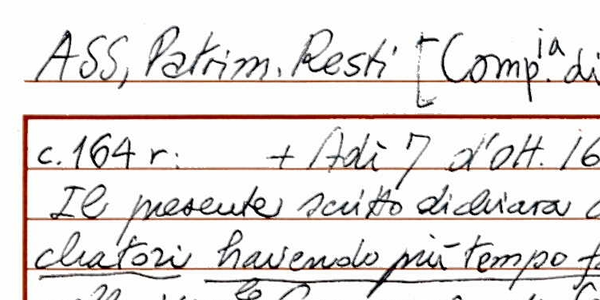 ASS, Patrim. Resti [Comp.ia di
c. 164 r: + Adì 7 d'ott. 16
Il presente scritto dichiara
chatori havendo più tempo